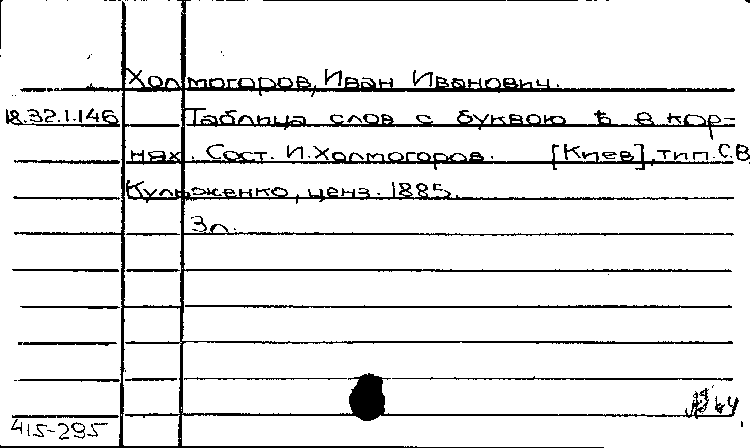 Холмогоров, Иван Иванович.
18.32.1.146 Таблица слов с буквою ѣ в кор-
нях. Сост. И. Холмогоров. [Киев], тип. С.В.
Кульженко, ценз. 1885.
3 л.
415-295